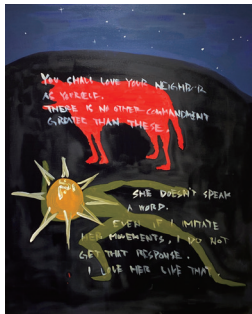 YOU SHALL LOVE YOUR NEIGHBOR
AS YOURSELF.
THERE IS NO OTHER COMMANDMENT
GREATER THAN THESE.
SHE DOESN'T SPEAK
A WORD.
EVEN IF I IMITATE
HER MOVEMENTS, I DO NOT
GET THAT RESPONSE.
I LOVE HER LIKE THAT.